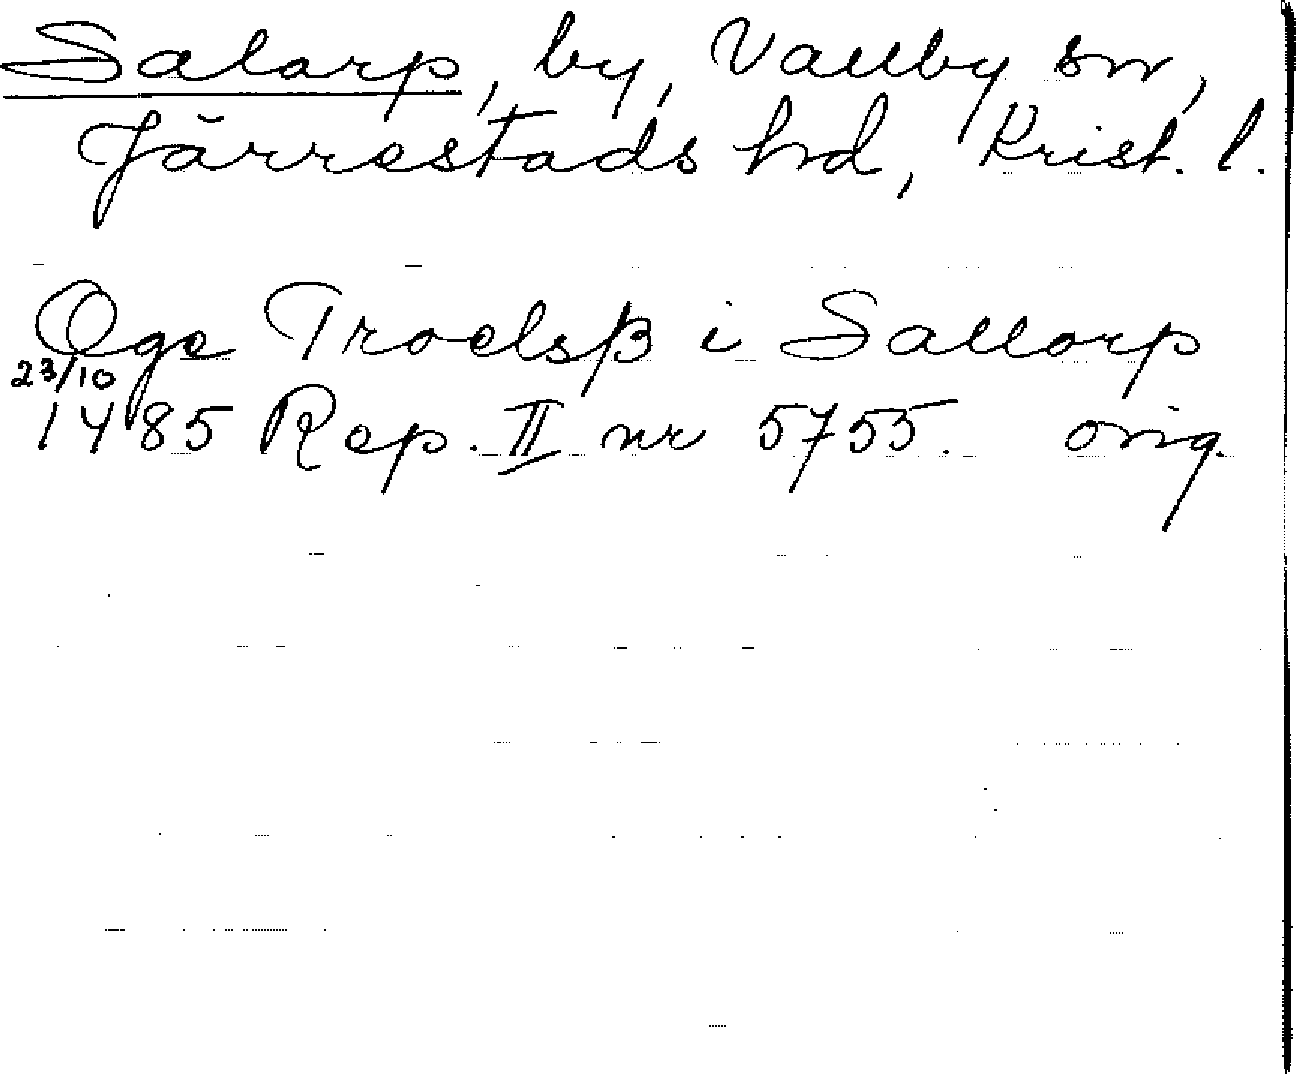 Salarp, by, Vallby sn,
Järrestads hd, Krist. l.
Oge Troelsß i Sallorp
23/10
1485 Rep. II nr 5755. orig.